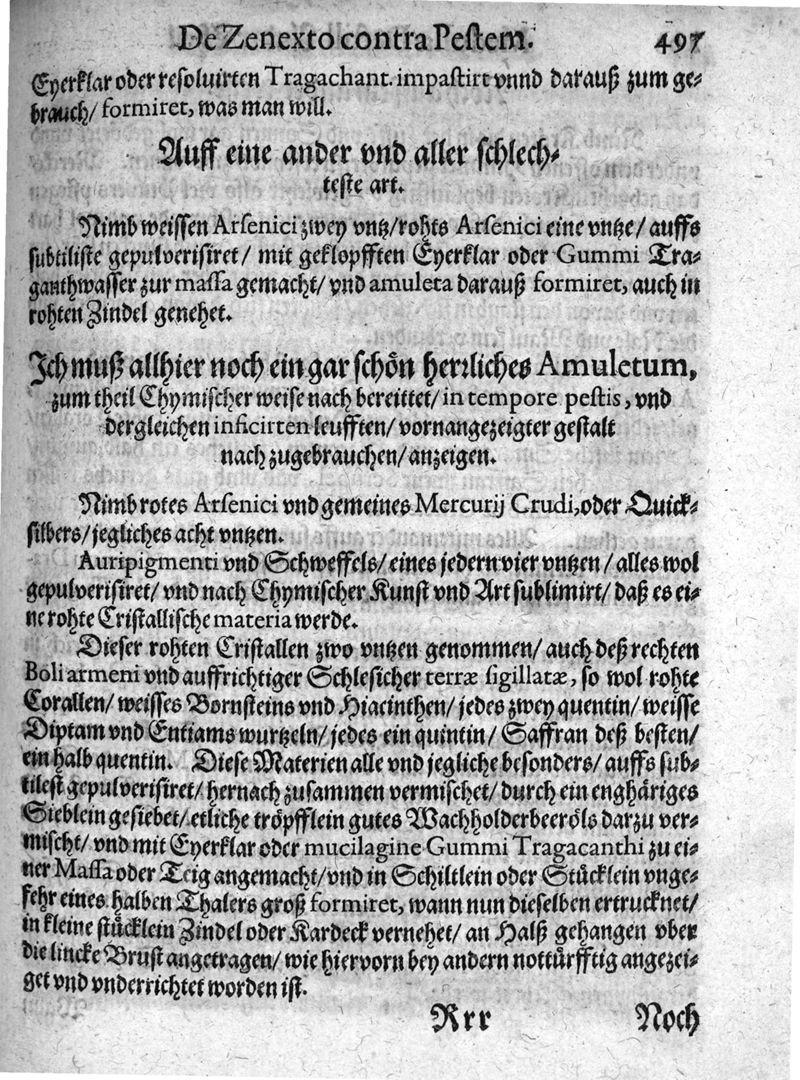 De Zenexto contra Pestem. 497
Eyerklar oder resoluirten Tragachant. impastirt vnnd darauß zum ge-
brauch/ formiret, was man will.
Auff eine ander vnd aller schlech-
teste art.
Nimb weissen Arsenici zwey vntz/ rohts Arsenici eine vntze/ auffs
subtiliste gepulverisiret/ mit geklopfften Eyerklar oder Gummi Tra-
ganthwasser zur massa gemacht/ vnd amuleta darauß formiret, auch in
rohten Zindel genehet.
Ich muß allhier noch ein gar schön herrliches Amuletum,
zum theil Chymischer weise nach bereittet/ in tempore pestis, vnd
dergleichen inficirten leufften/ vornangezeigter gestalt
nach zugebrauchen/ anzeigen.
Nimb rotes Arsenici vnd gemeines Mercurij Crudi, oder Quick-
silbers/ jegliches acht vntzen.
Auripigmenti vnd Schweffels/ eines jedern vier vntzen/ alles wol
gepulverisiret/ vnd nach Chymischer Kunst vnd Art sublimirt/ daß es ei-
ne rohte Cristallische materia werde.
Dieser rohten Cristallen zwo vntzen genommen/ auch deß rechten
Boli armeni vnd auffrichtiger Schlesicher terræ sigillatæ, so wol rohte
Corallen/ weisses Bornsteins vnd Hiacinthen/ jedes zwey quentin/ weisse
Diptam vnd Entians wurtzeln/ jedes ein quintin/ Saffran deß besten/
ein halb quentin. Diese Materien alle vnd jegliche besonders/ auffs sub-
tilest gepulverisiret/ hernach zusammen vermischet/ durch ein enghäriges
Sieblein gesiebet/ etliche tröpfflein gutes Wachholderbeeröls darzu ver-
mischt/ vnd mit Eyerklar oder mucilagine Gummi Tragacanthi zu ei-
ner Massa oder Teig angemacht/ vnd in Schiltlein oder Stücklein vnge-
fehr eines halben Thalers groß formiret, wann nun dieselben ertrucknet/
in kleine stücklein Zindel oder Kardeck vernehet/ an Halß gehangen vber
die lincke Brust angetragen/ wie hiervorn bey andern nottürfftig angezei-
get vnd vnderrichtet worden ist.
Rrr Noch